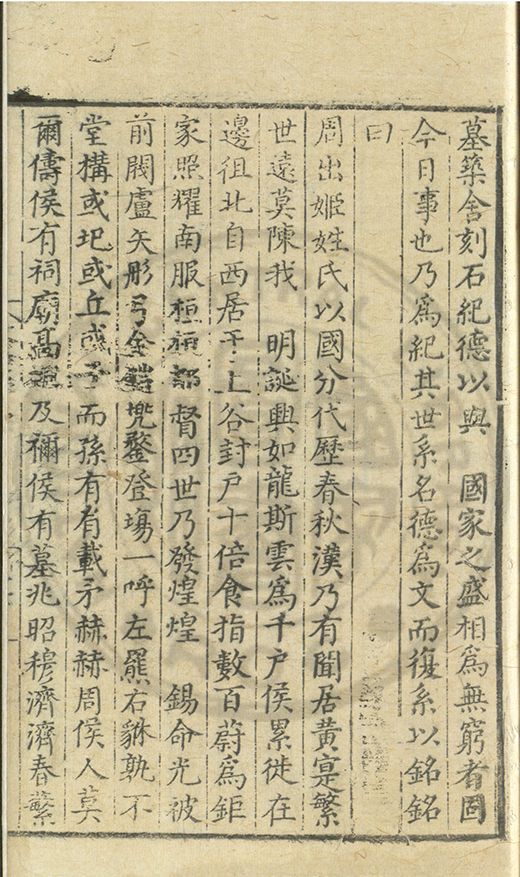 墓築舍刻石紀德以與　國家之盛相爲無窮者固
今日事也乃爲紀其世系名德爲文而復系以銘銘
曰
周出姬姓氏以國分代歷春秋漢乃有聞居黃寔繁
世遠莫陳我　明誕興如龍斯雲爲千戶侯累徙在
邊徂北自西居于上谷封戶十倍食指數百蔚爲鉅
家照耀南服桓桓都督四世乃發煌煌　錫命光被
前閥盧矢彤弓金鎧兜鍪登塲一呼左羆右貅孰不
堂構或圯或丘或子而孫有有載矛赫赫周侯人莫
爾儔侯有祠廟高及禰侯有墓兆昭穆濟濟春蘩